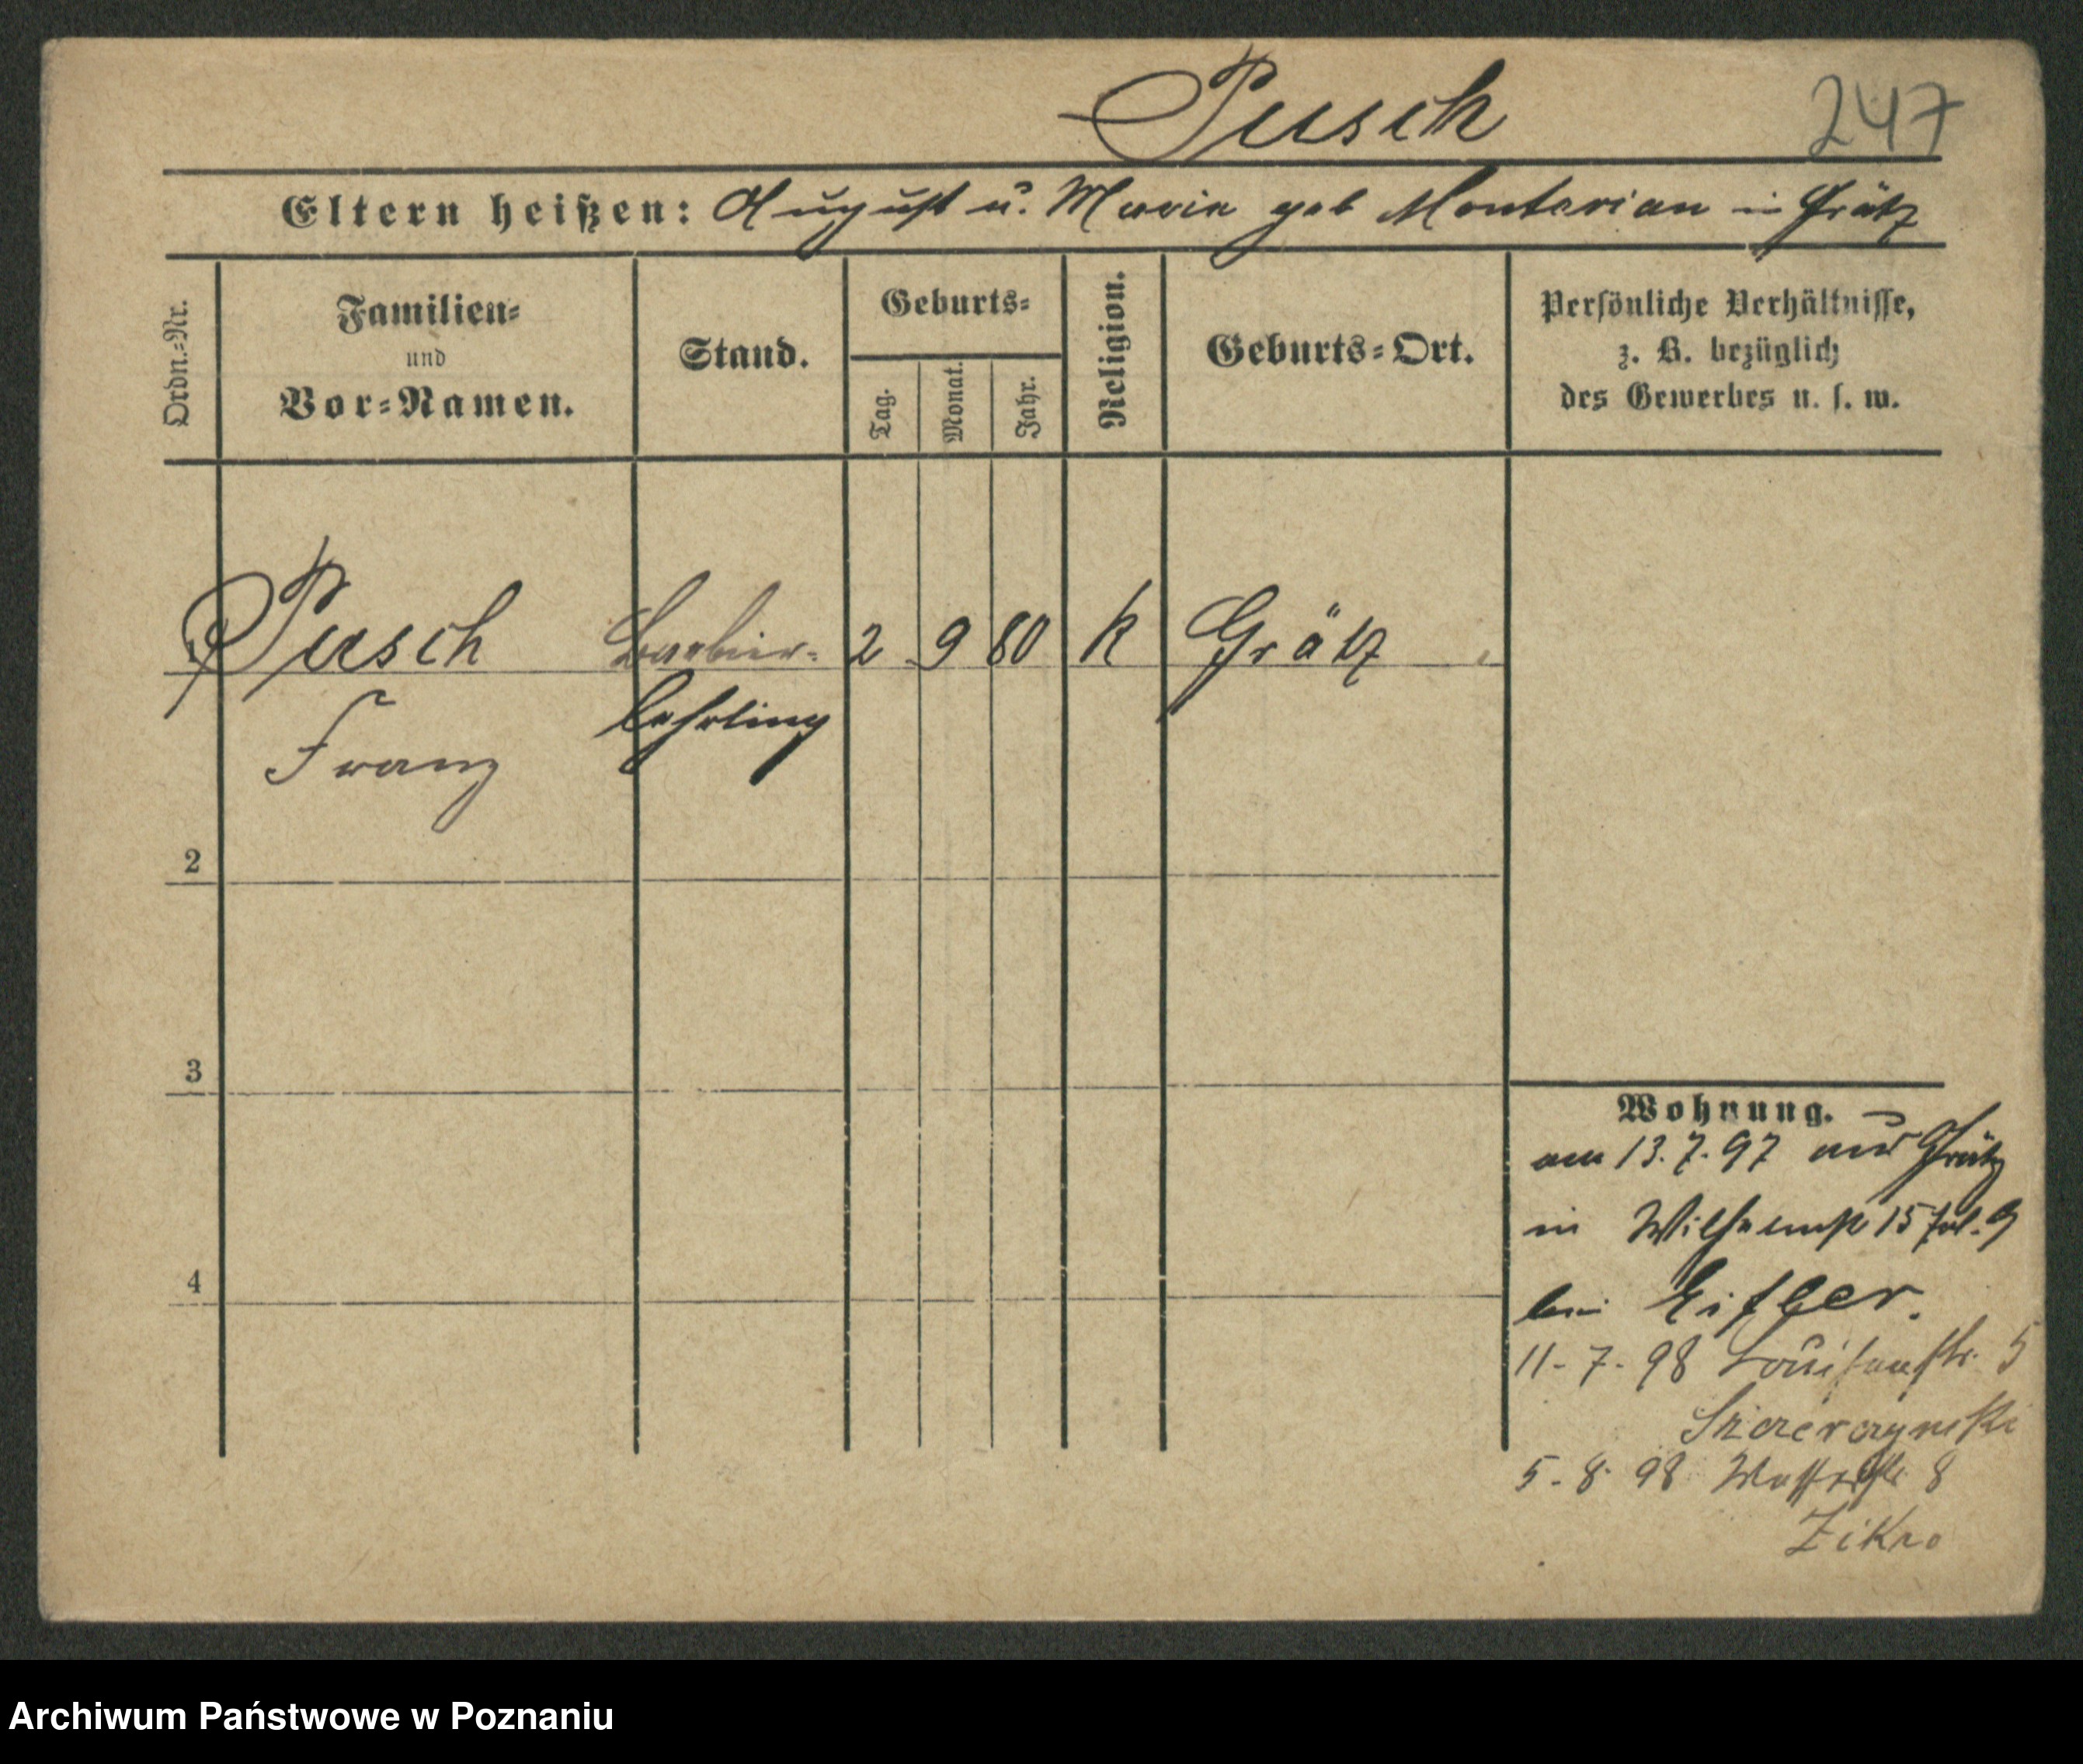 Pusch 247
Eltern heißen: August u. Marie geb Montarian in Grätz
Ordn.=Nr.
Familien=
und
Vor=Namen.
Stand.
Geburts=
Tag.
Monat.
Jahr.
Religion.
Geburts=Ort.
Persönliche Verhältnisse,
z. B. bezüglich
des Gewerbes u. s. w.
Pusch Barbier= 2 9 80 K Grätz
Franz lehrling
2
3
4
Wohnung.
am 13.7.97 aus Grätz
in 15
bei
11-7-98 Louisenstr. 5
5-8-98 8
Archiwum Państwowe w Poznaniu